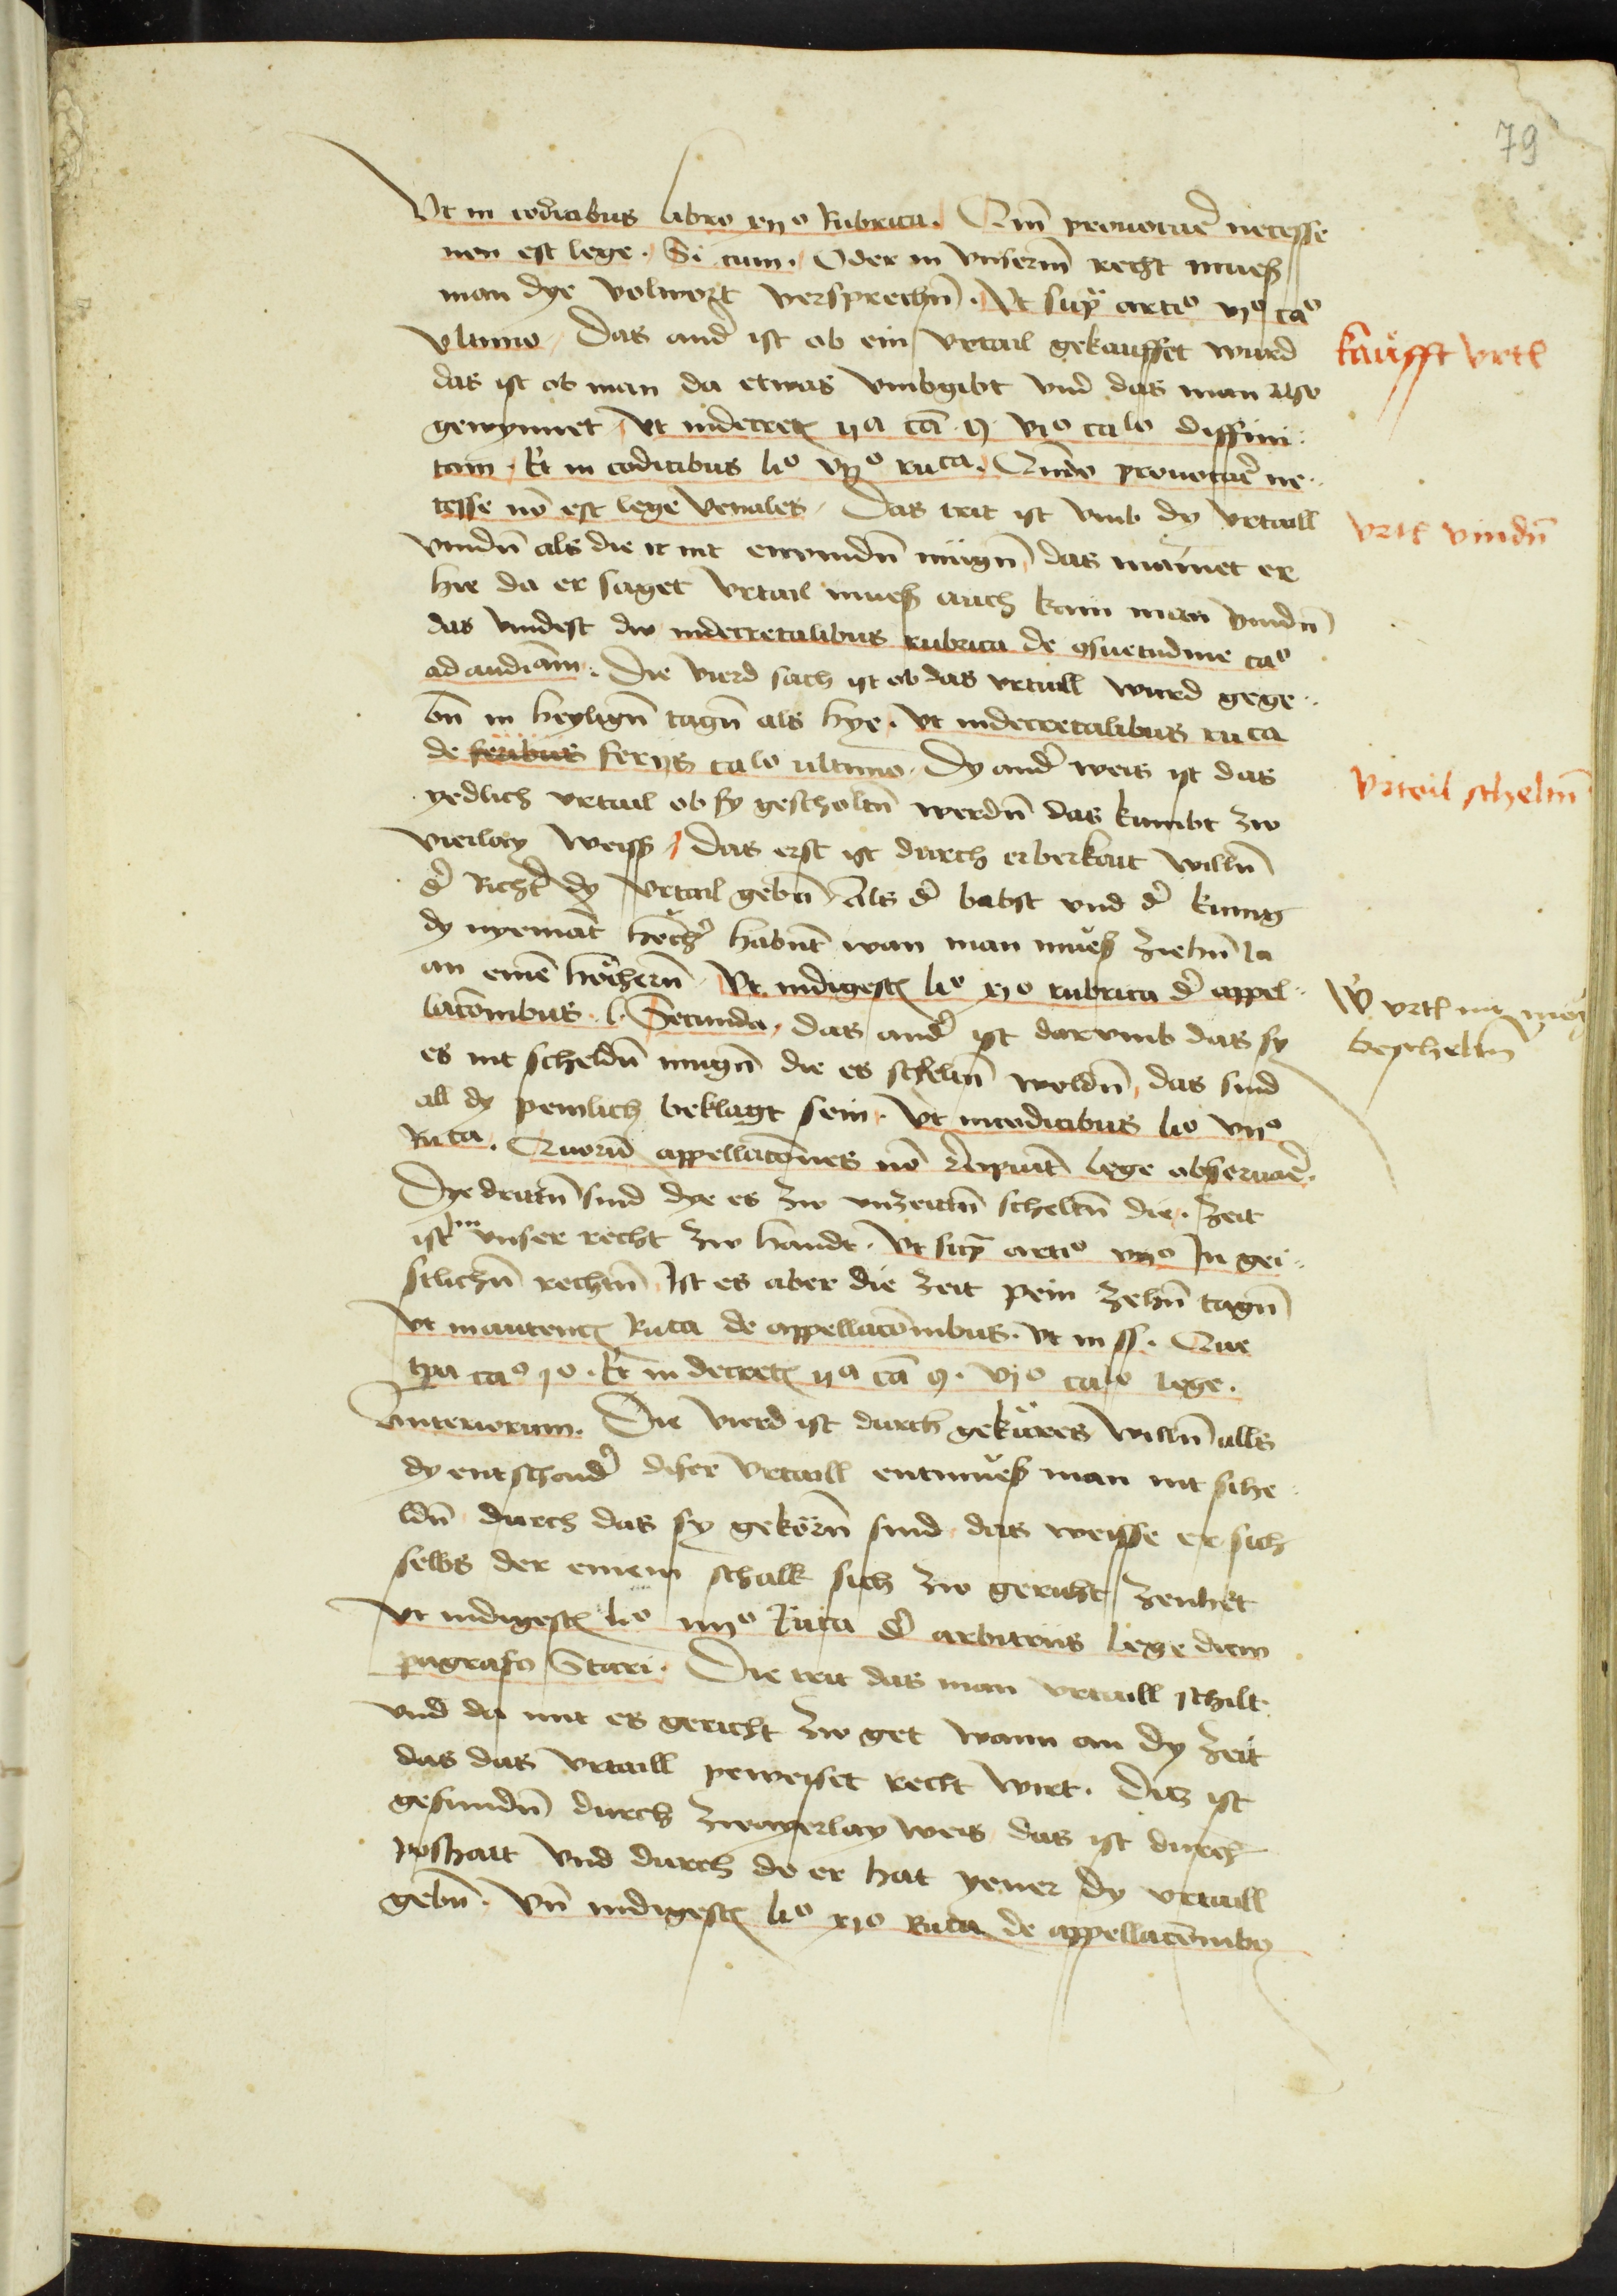 79
Vt in codicibus libro vijo Rubrica. Qm̄ prouocar̄ necesse
non est lege. Si cum. Oder in vnserm̄ recht mueß
man dye volwort versprechn̄. Vt supra artio vjo cao
vltimo Das ander ist ob ein vrtail gekauffet wurd
das ist ob man da etwas vmbgibt vnd das man also
gewynnet Vt indecret ija ca q vjo calo diffini
tam. Et in codicibus lio vijo ruca. Quādo prouocar̄ ne
cesse nō est lege Venales. Das trit ist vmb dy vrtaill
vindn̄ als die it nit envindn̄ mügn̄ das mainet er
hie da er saget vrtail mueß auch kain man vindn̄
das vindest dw indecretalibus rubrica de 9suetudine cao
ad audiam. Die vierd sach ist ob das vrtaill wurd gege
bn̄ in heylign̄ tagn̄ als hye. Vt indecretalibus ruca
de feribus ferijs calo ultimo. Dy ander weis ist das
yedlich vrtail ob sy gescholtn̄ werdn̄ das kumbt zw
vierlay weiss Das erst ist durch erberkait willn̄
der Richter dy vrtail gebn̄ Als der babst vnd der kunig
dy nyemāt hocher habnt wan man mueß ziehn̄ la
an einē höchern̄ Vt indigest lio xjo rubrica de appel
lacōnibus. l. Secunda, das ander ist darvmb das sy
es nit scheldn̄ mugn̄ die es scheltn̄ woldn̄, das sind
all dy peinlich beklagt sein. Vt incodicibus lio vijo
Ruca. Quorū appellacōnes nō recipiūt lege obseruar̄.
Dye drittn̄ sind dye es zw vnzeittn̄ scheltn̄ die. zeit
ist in vnser recht zw handt. Vt supra artio vijo In gei
stlichn̄ rechtn̄ Ist es aber die zeit pein zehn̄ tagn̄
Vt inautent Ruca de appellacōnibus. Vt in ss. Que
tpa cao jo. Et in decret ija ca q. vjo calo lege.
Anteriorum. Die vierd ist durch gekuͤres willn̄ alls
dy entschaider diser vrtaill entmueß man nit sche
ldn̄ durch das sy gekorn̄ sind das weisse er sich
selbs der einem schalk sich zw gericht zeuhet
Vt indigest lio iiijo Ruca de arbitrijs lege diem
pagrafo Stari. Die trit das man vrtaill schilt
vnd da mit es gericht zw get wann an dy zeit
das das vrtaill peweiset recht wirt. Ditz ist
gefundn̄ durch zwayerlay weis das ist durch
poshait vnd durch do er hat yener dy vrtaill
gebn̄. Vn̄ indigest lio xjo Ruca de appellacōnibz
kaüfft vrtl
vrtl vindn̄
Vrteil scheltn̄
vrtl nit mög
beschelten